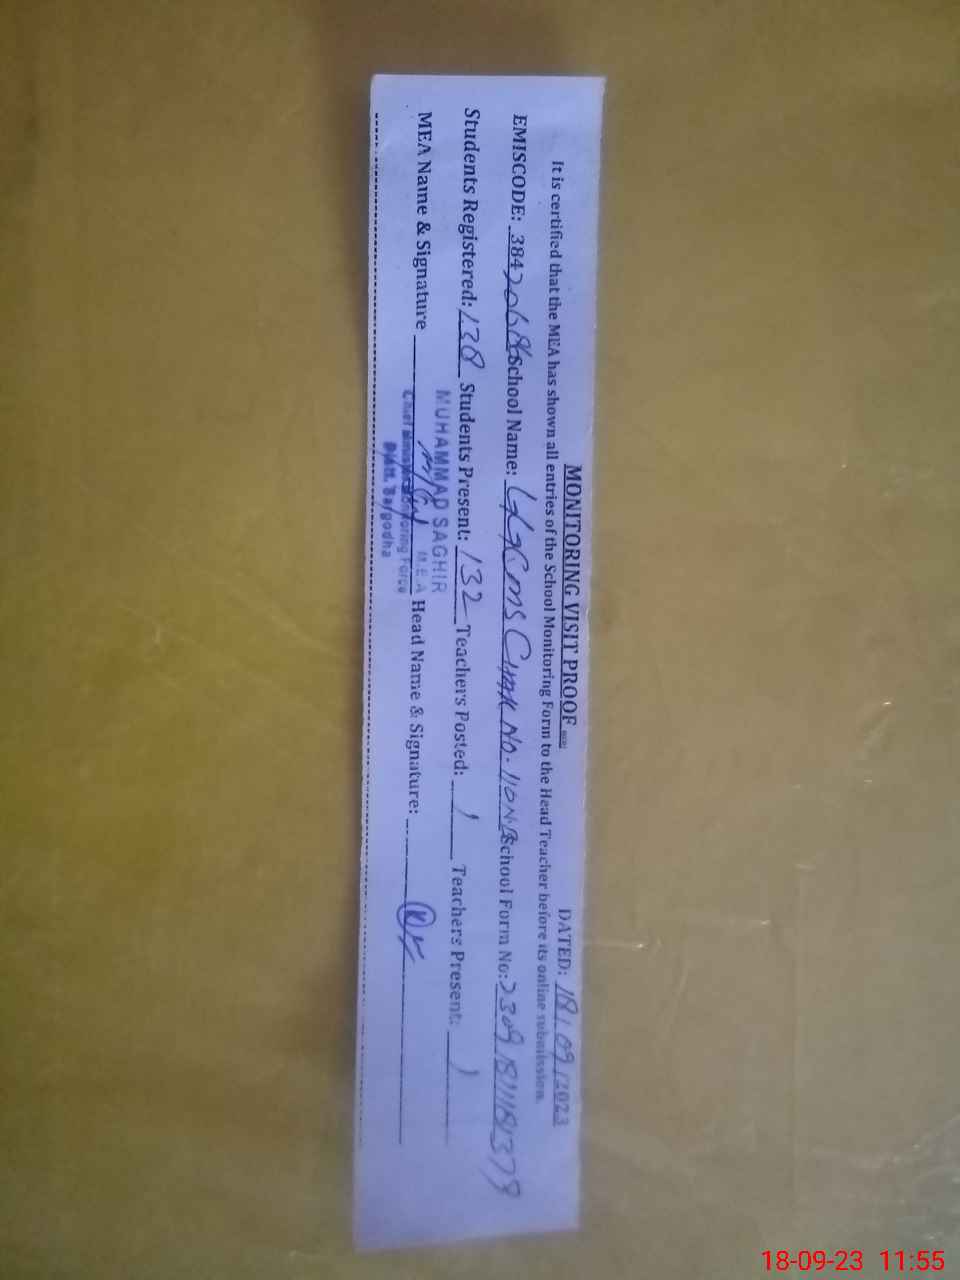 MONITORING VISIT PROOF
DATED: 18/09/2023
It is certified that the MEA has shown all entries of the School Monitoring Form to the Head Teacher before its online submission.
EMISCODE: School Name: CHAK NO. 110 NB School Form No:
Students Registered: 138 Students Present: 132 Teachers Posted: 1 Teachers Present: 1
MEA Name & Signature Head Name & Signature:
MUHAMMAD SAGHIR
MEA
Chief Minister Monitoring Force
Distt. Sargodha
18-09-23 11:55